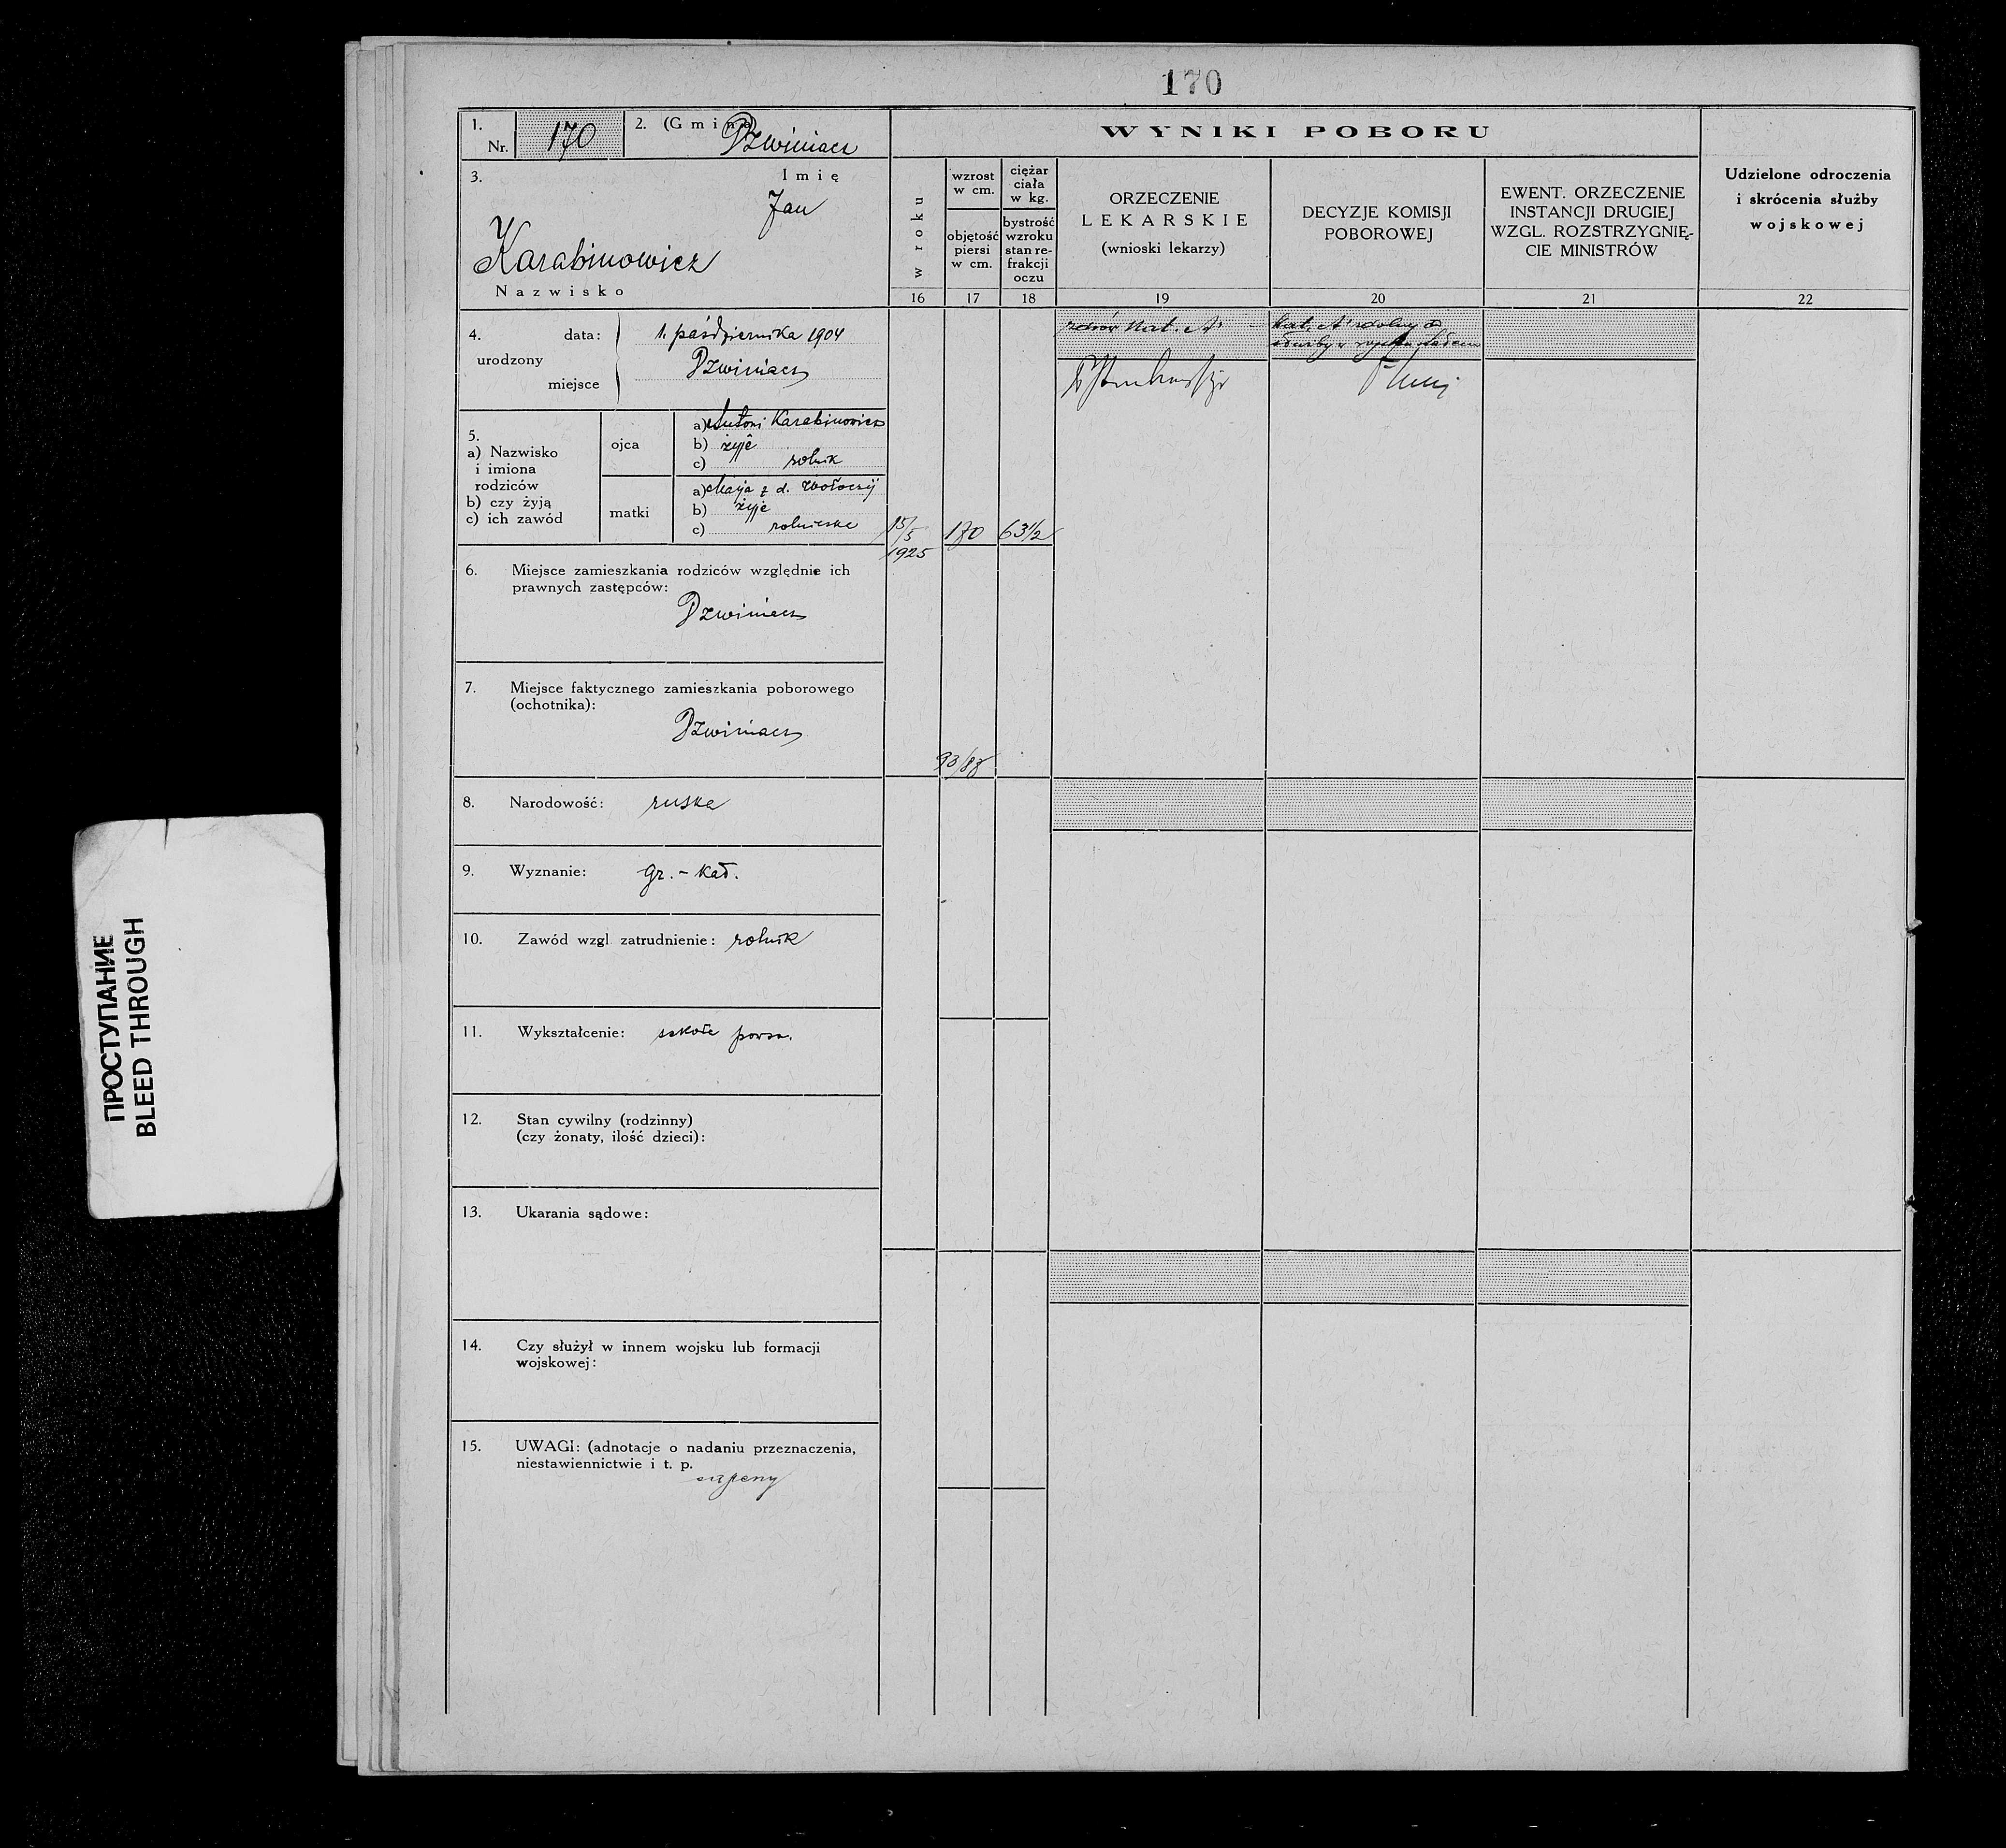 170
1.
Nr. 170
2. (Gmina) Dzwiniacz
3. Imię
Jan
Karabinowicz
Nazwisko
WYNIKI POBORU
w roku
wzrost
w cm.
objętość
piersi
w cm.
ciężar
ciała
w kg.
bystrość
wzroku
stan re-
frakcji
oczu
ORZECZENIE
LEKARSKIE
(wnioski lekarzy)
DECYZJE KOMISJI
POBOROWEJ
EWENT. ORZECZENIE
INSTANCJI DRUGIEJ
WZGL. ROZSTRZYGNIĘ-
CIE MINISTRÓW
Udzielone odroczenia
i skrócenia służby
wojskowej
16 17 18 19 20 21 22
4. data: 1. października 1904
urodzony
miejsce Dzwiniacz
5.
a) Nazwisko
i imiona
rodziców
b) czy żyją
c) ich zawód
ojca
a) Antoni Karabinowicz
b) żyje
c) rolnik
matki
a) Marja z d.
b) żyje
c) rolniczka
15/5
1925
170
63 1/2
93/87
kat. A
kat. A zdolny do
służby w
6. Miejsce zamieszkania rodziców względnie ich
prawnych zastępców:
Dzwiniacz
7. Miejsce faktycznego zamieszkania poborowego
(ochotnika):
Dzwiniacz
8. Narodowość: ruska
9. Wyznanie: gr.-kat.
10. Zawód wzgl. zatrudnienie: rolnik
11. Wykształcenie: szkoła powsz.
12. Stan cywilny (rodzinny)
(czy żonaty, ilość dzieci):
13. Ukarania sądowe:
14. Czy służył w innem wojsku lub formacji
wojskowej:
15. UWAGI: (adnotacje o nadaniu przeznaczenia,
niestawiennictwie i t. p.
ПРОСТУПАНИЕ
BLEED THROUGH